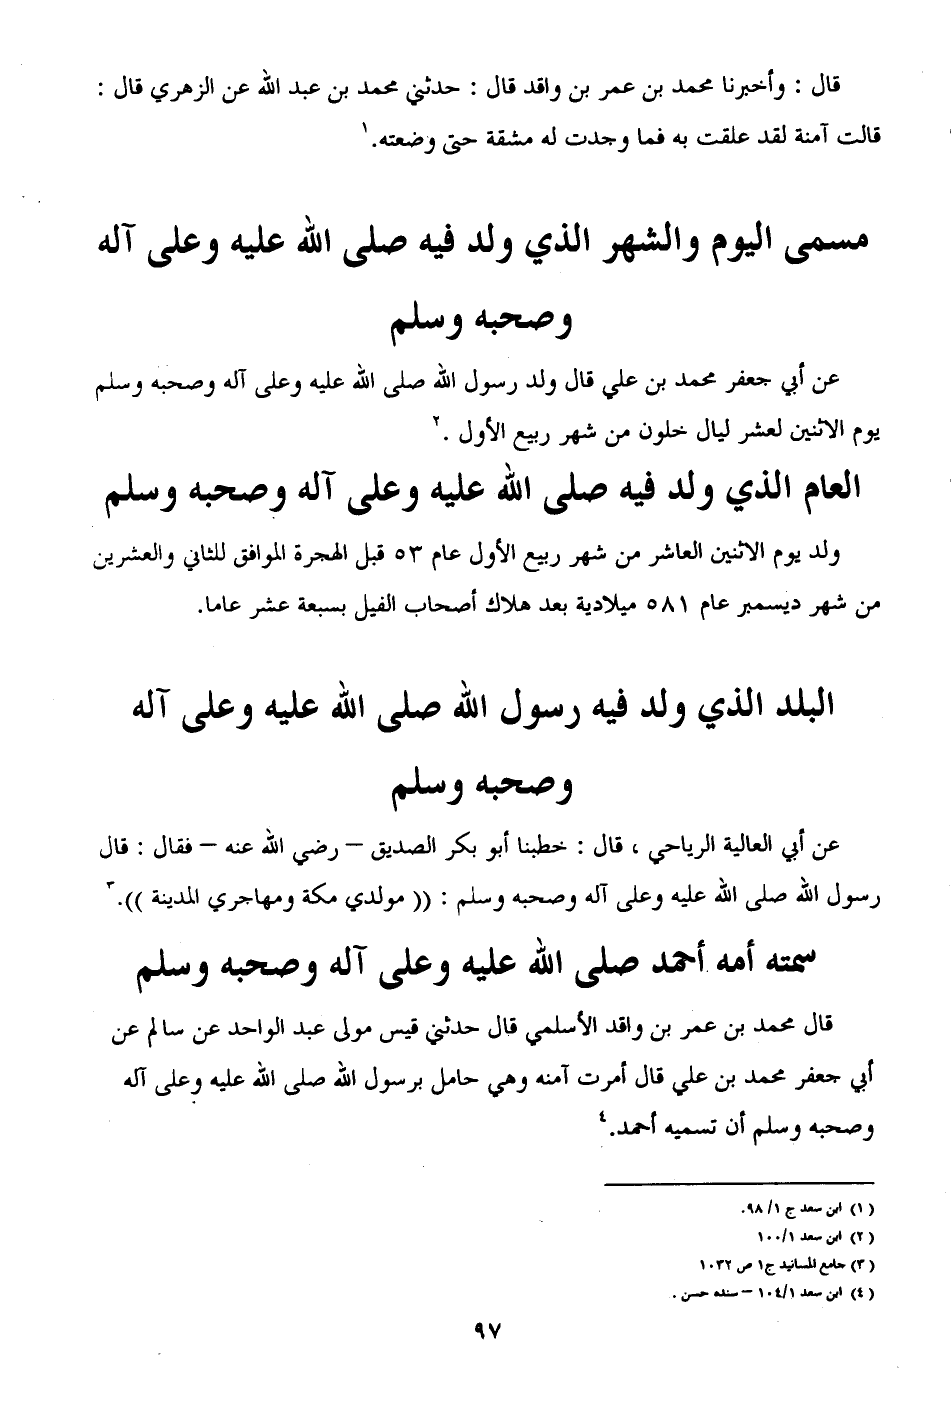 قال : وأخبرنا محمد بن عمر بن واقد قال : حدثني محمد بن عبد الله عن الزهري قال :
قالت آمنة لقد علقت به فما وجدت له مشقة حتى وضعته.١
مسمى اليوم والشهر الذي ولد فيه صلى الله عليه وعلى آله
وصحبه وسلم
عن أبي جعفر محمد بن علي قال ولد رسول الله صلى الله عليه وعلى آله وصحبه وسلم
يوم الاثنين لعشر ليال خلون من شهر ربيع الأول .٢
العام الذي ولد فيه صلى الله عليه وعلى آله وصحبه وسلم
ولد يوم الاثنين العاشر من شهر ربيع الأول عام ٥٣ قبل الهجرة الموافق للثاني والعشرين
من شهر ديسمبر عام ٥٨١ ميلادية بعد هلاك أصحاب الفيل بسبعة عشر عاما.
البلد الذي ولد فيه رسول الله صلى الله عليه وعلى آله
وصحبه وسلم
عن أبي العالية الرياحي ، قال : خطبنا أبو بكر الصديق – رضي الله عنه – فقال : قال
رسول الله صلى الله عليه وعلى آله وصحبه وسلم : (( مولدي مكة ومهاجري المدينة )).٣
سمته أمه أحمد صلى الله عليه وعلى آله وصحبه وسلم
قال محمد بن عمر بن واقد الأسلمي قال حدثني قيس مولى عبد الواحد عن سالم عن
أبي جعفر محمد بن علي قال أمرت آمنه وهي حامل برسول الله صلى الله عليه وعلى آله
وصحبه وسلم أن تسميه أحمد.٤
(١) ابن سعد ج ١/ ٩٨.
(٢) ابن سعد ١/ ١٠٠
(٣) جامع المسانيد ج١ ص ١٠٣٢
(٤) ابن سعد ١/ ١٠٤ – سنده حسن .
٩٧